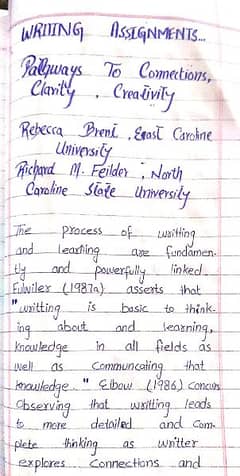 WRITING ASSIGNMENTS...
Pathways To Connections,
Clarity , Creativity
Rebecca Brent , East Caroline
University
Richard M. Feilder , North
Caroline State University
The process of writting
and learning are fundamen-
tly and powerfully linked.
Fulwiler (1987a) asserts that
"writting is basic to think-
ing about and learning,
knowledge in all fields as
well as Communcating that
knowledge." Elbow (1986) Concurs
Observing that writting leads
to more detailed and Com-
plete thinking as writter
explores Connections and